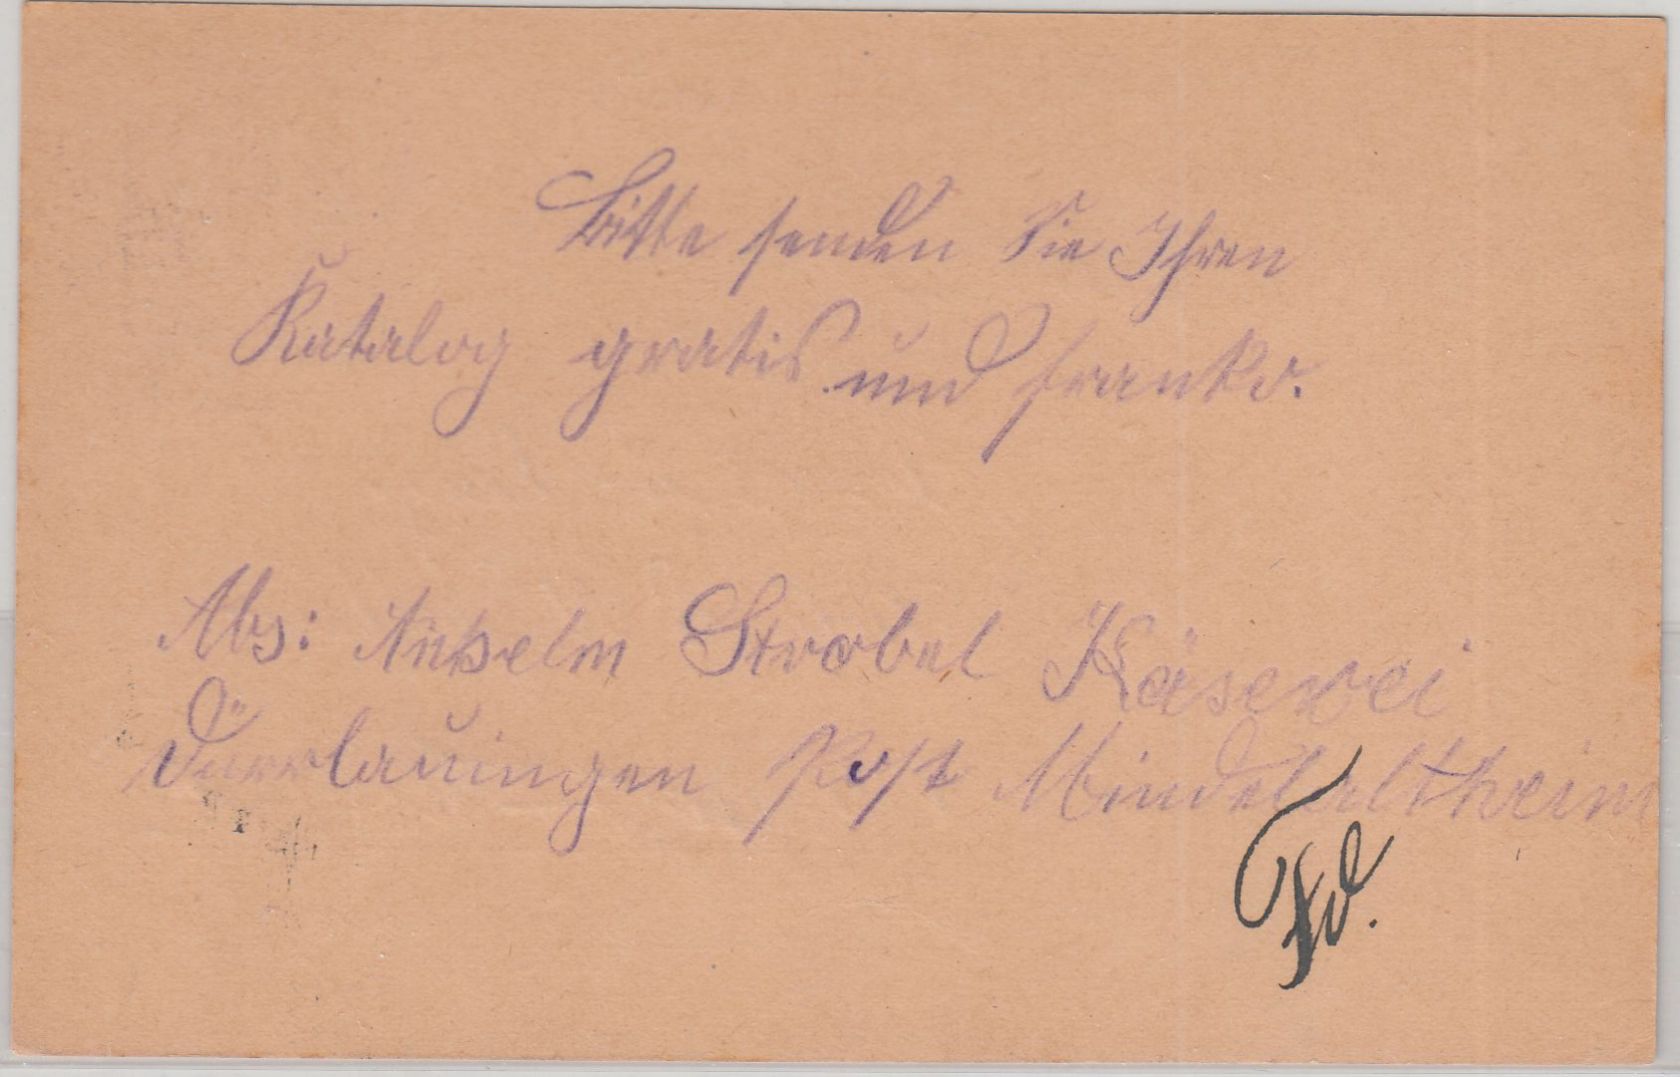 Bitte senden Sie Ihren
Katalog gratis und franko.
Abs: Anselm Strobel Käserei
Dürrlauingen Post Mindelaltheim